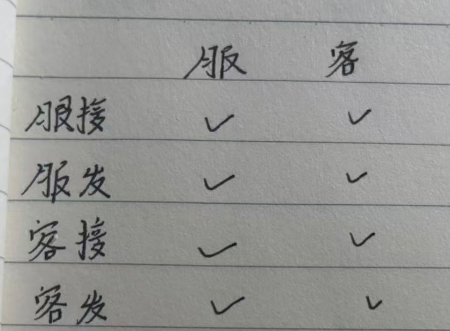 服 客
服接 ✓ ✓
服发 ✓ ✓
客接 ✓ ✓
客发 ✓ ✓